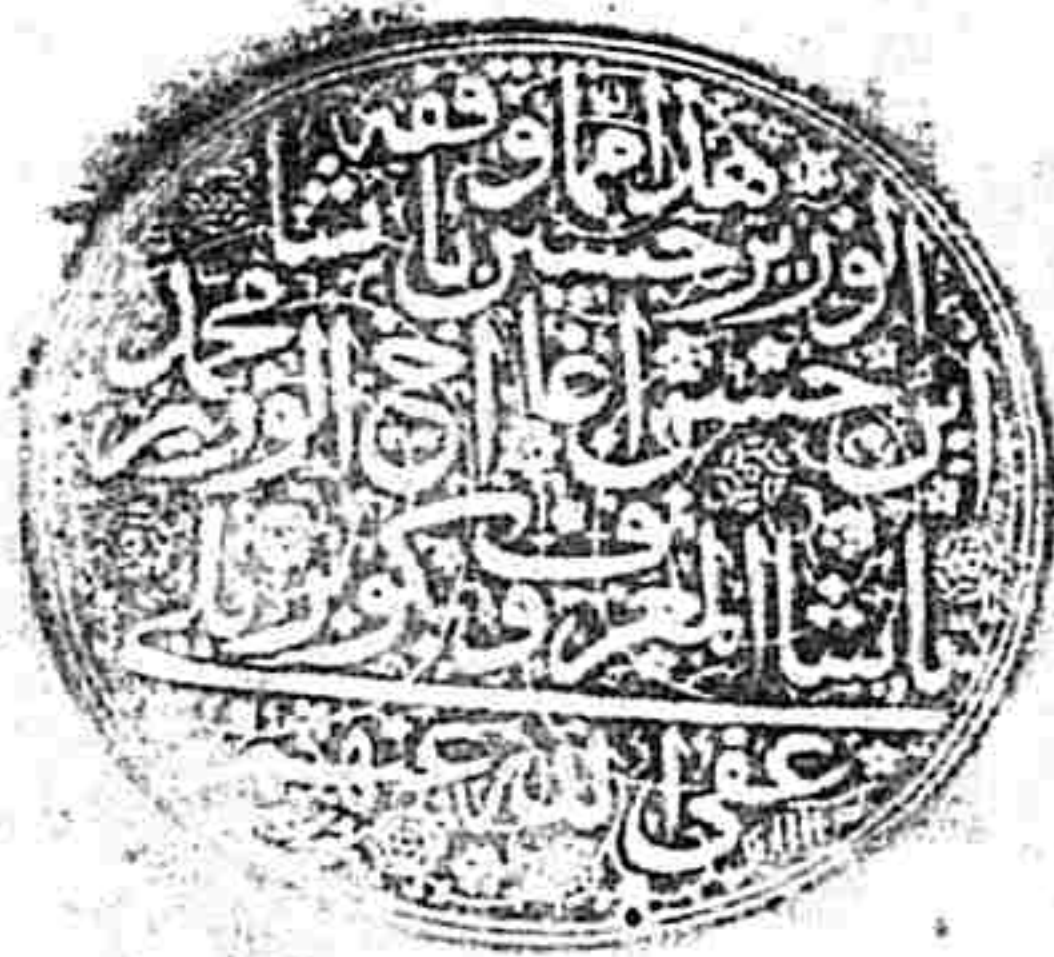 هذا مما وقفه
الوزير حسين باشا
ابن حسن اغا اخى الوزير محمد
باشا المعروف بكوپريلى
عفى الله عنهم